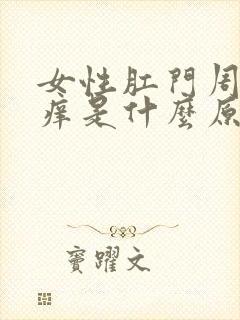 女性肛門周
痒是什麼原
竇躍文